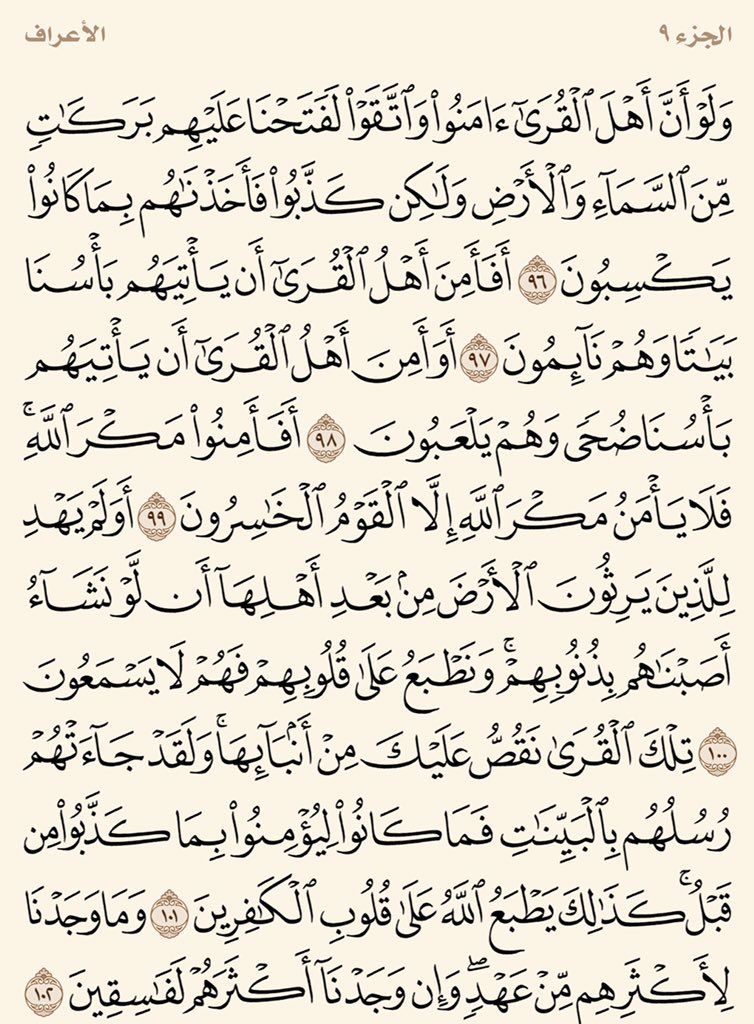 الجزء ٩
الأعراف
وَلَوْ أَنَّ أَهْلَ ٱلْقُرَىٰٓ ءَامَنُوا۟ وَٱتَّقَوْا۟ لَفَتَحْنَا عَلَيْهِم بَرَكَـٰتٍ
مِّنَ ٱلسَّمَآءِ وَٱلْأَرْضِ وَلَـٰكِن كَذَّبُوا۟ فَأَخَذْنَـٰهُم بِمَا كَانُوا۟
يَكْسِبُونَ ٩٦ أَفَأَمِنَ أَهْلُ ٱلْقُرَىٰٓ أَن يَأْتِيَهُم بَأْسُنَا
بَيَـٰتًا وَهُمْ نَآئِمُونَ ٩٧ أَوَأَمِنَ أَهْلُ ٱلْقُرَىٰٓ أَن يَأْتِيَهُم
بَأْسُنَا ضُحًى وَهُمْ يَلْعَبُونَ ٩٨ أَفَأَمِنُوا۟ مَكْرَ ٱللَّهِ ۚ
فَلَا يَأْمَنُ مَكْرَ ٱللَّهِ إِلَّا ٱلْقَوْمُ ٱلْخَـٰسِرُونَ ٩٩ أَوَلَمْ يَهْدِ
لِلَّذِينَ يَرِثُونَ ٱلْأَرْضَ مِنۢ بَعْدِ أَهْلِهَآ أَن لَّوْ نَشَآءُ
أَصَبْنَـٰهُم بِذُنُوبِهِمْ ۚ وَنَطْبَعُ عَلَىٰ قُلُوبِهِمْ فَهُمْ لَا يَسْمَعُونَ
١٠٠ تِلْكَ ٱلْقُرَىٰ نَقُصُّ عَلَيْكَ مِنْ أَنۢبَآئِهَا ۚ وَلَقَدْ جَآءَتْهُمْ
رُسُلُهُم بِٱلْبَيِّنَـٰتِ فَمَا كَانُوا۟ لِيُؤْمِنُوا۟ بِمَا كَذَّبُوا۟ مِن
قَبْلُ ۚ كَذَٰلِكَ يَطْبَعُ ٱللَّهُ عَلَىٰ قُلُوبِ ٱلْكَـٰفِرِينَ ١٠١ وَمَا وَجَدْنَا
لِأَكْثَرِهِم مِّنْ عَهْدٍ ۖ وَإِن وَجَدْنَآ أَكْثَرَهُمْ لَفَـٰسِقِينَ ١٠٢